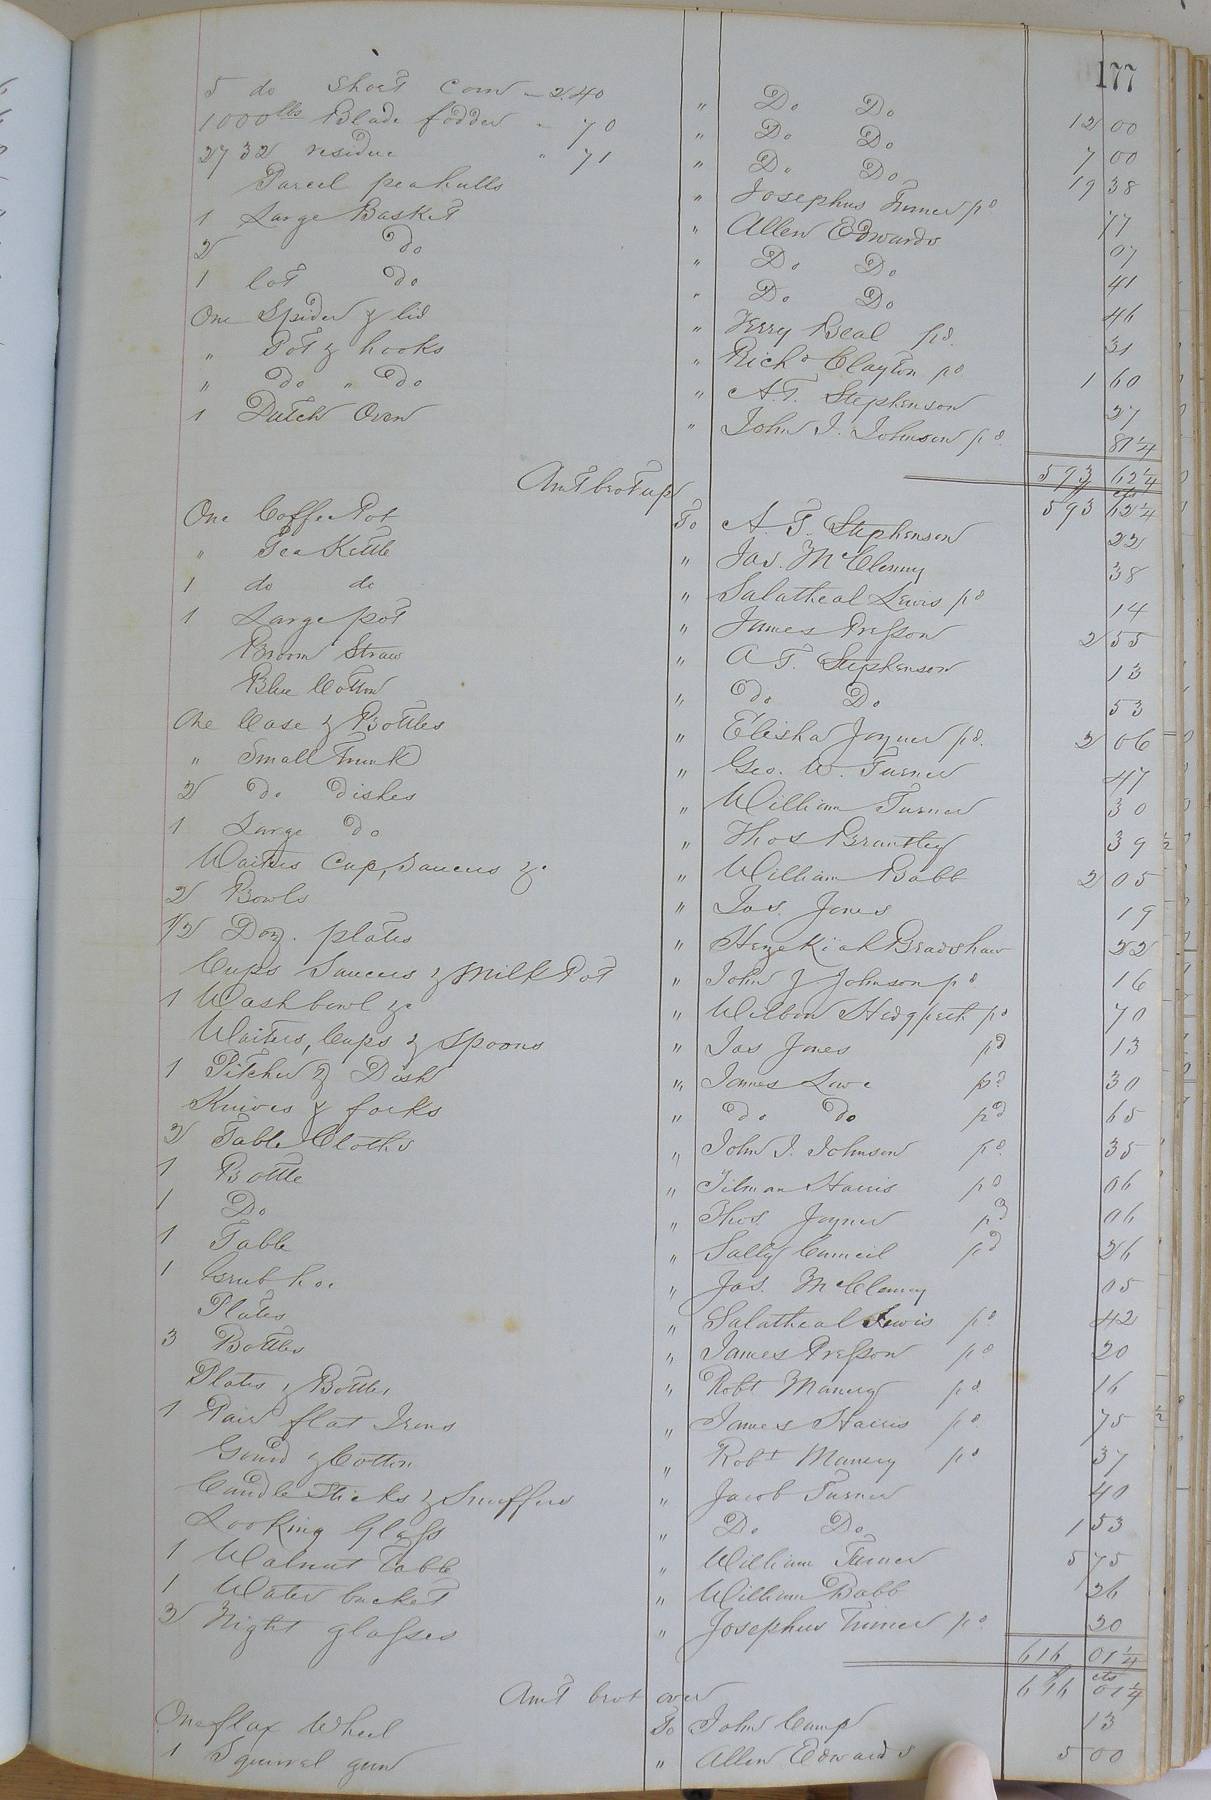 177
5 do Short Corn - 2.40 " Do Do 12 00
1000 lbs Blade fodder - 70 " Do Do 7 00
2732 residue " 71 " Do Do 19 38
Parcel peahulls " Josephus Turner pd 77
1 Large Basket " Allen Edwards 07
2 Do " Do Do 41
1 lot Do " Do Do 46
One Spider & lid " Jerry Beal pd. 31
" Pot & hooks " Richd Clayton pd 1 60
" Do " Do " A. T. Stephenson 27
1 Dutch Oven " John J. Johnson pd. 81 1/4
593 62 1/4
Amt brot up $ 593 cts 62 1/4
One Coffee Pot To A. T. Stephenson 22
" Tea Kettle " Jas. McClenny 38
1 do do " Salatheal Lewis pd 14
1 Large pot " James Presson 2 55
Broom Straw " A T. Stephenson 13
Blue Cotton " Do Do 53
One Case & Bottles " Elisha Joyner pd. 2 06
" Small Trunk " Geo. W. Turner 47
2 Do dishes " William Turner 30
1 Large Do " Thos Brantley 39 1/2
Waiters Cup, Saucers &c " William Babb 2 05
2 Bowls " Jas. Jones 19
1/2 Doz. plates " Hezekiah Bradshaw 22
Cups Saucers & Milk Pot " John J Johnson pd 16
1 Wash bowl &c " Wilson Hedgpeth pd 70
Waiters, Cups & Spoons " Jas Jones pd 13
1 Pitcher & Dish " James Lowe pd 30
Knives & forks " Do Do pd 65
2 Table Cloths " John J. Johnson pd. 35
1 Bottle " Tilman Harris pd 06
1 Do " Thos. Joyner pd 06
1 Table " Sally Council pd 26
1 Grub hoe " Jas. McClenny 05
Plates " Salatheal Lewis pd 42
3 Bottles " James Presson pd 20
Plates & Bottles " Robt Manery pd. 16
1 Pair flat Irons " James Harris pd 75
Gourd & Cotton " Robt Manery pd 37
Candle Sticks & Snuffers " Jacob Turner 40
Looking Glass " Do Do 1 53
1 Walnut Table " William Turner 5 75
1 Water bucket " William Babb 26
2 Night glasses " Josephus Turner pd 20
616 01 1/4
Amt brot over $ 616 cts 01 1/4
One flax Wheel To John Camp 13
1 Squirrel gun " Allen Edwards 5 00